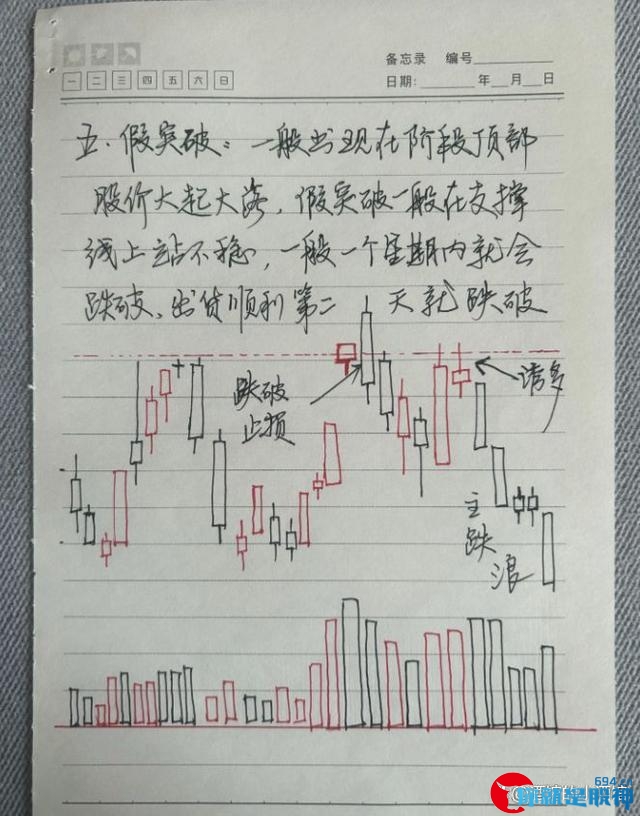 备忘录 编号
一 二 三 四 五 六 日
日期: 年 月 日
五.假突破:一般出现在阶段顶部
股价大起大落,假突破一般在支撑
线上站不稳,一般一个星期内就会
跌破、出货顺利第二 天就跌破
跌破
止损
诱多
主
跌
浪
694.cn